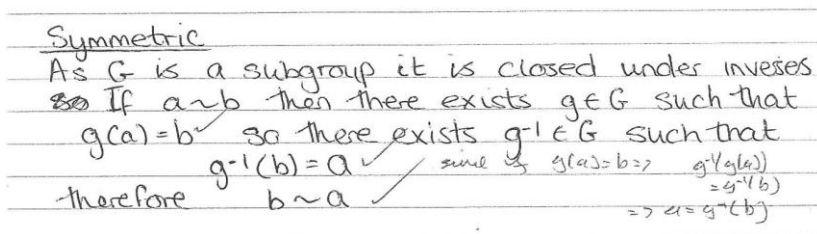 Symmetric
As G is a subgroup it is closed under inveses
so If a~b then there exists g∈G such that
g(a)=b ✓ so there exists g⁻¹∈G such that
g⁻¹(b)=a ✓ since g(a)=b=> g⁻¹(g(a))
=g⁻¹(b)
therefore b~a ✓ => a=g⁻¹(b)